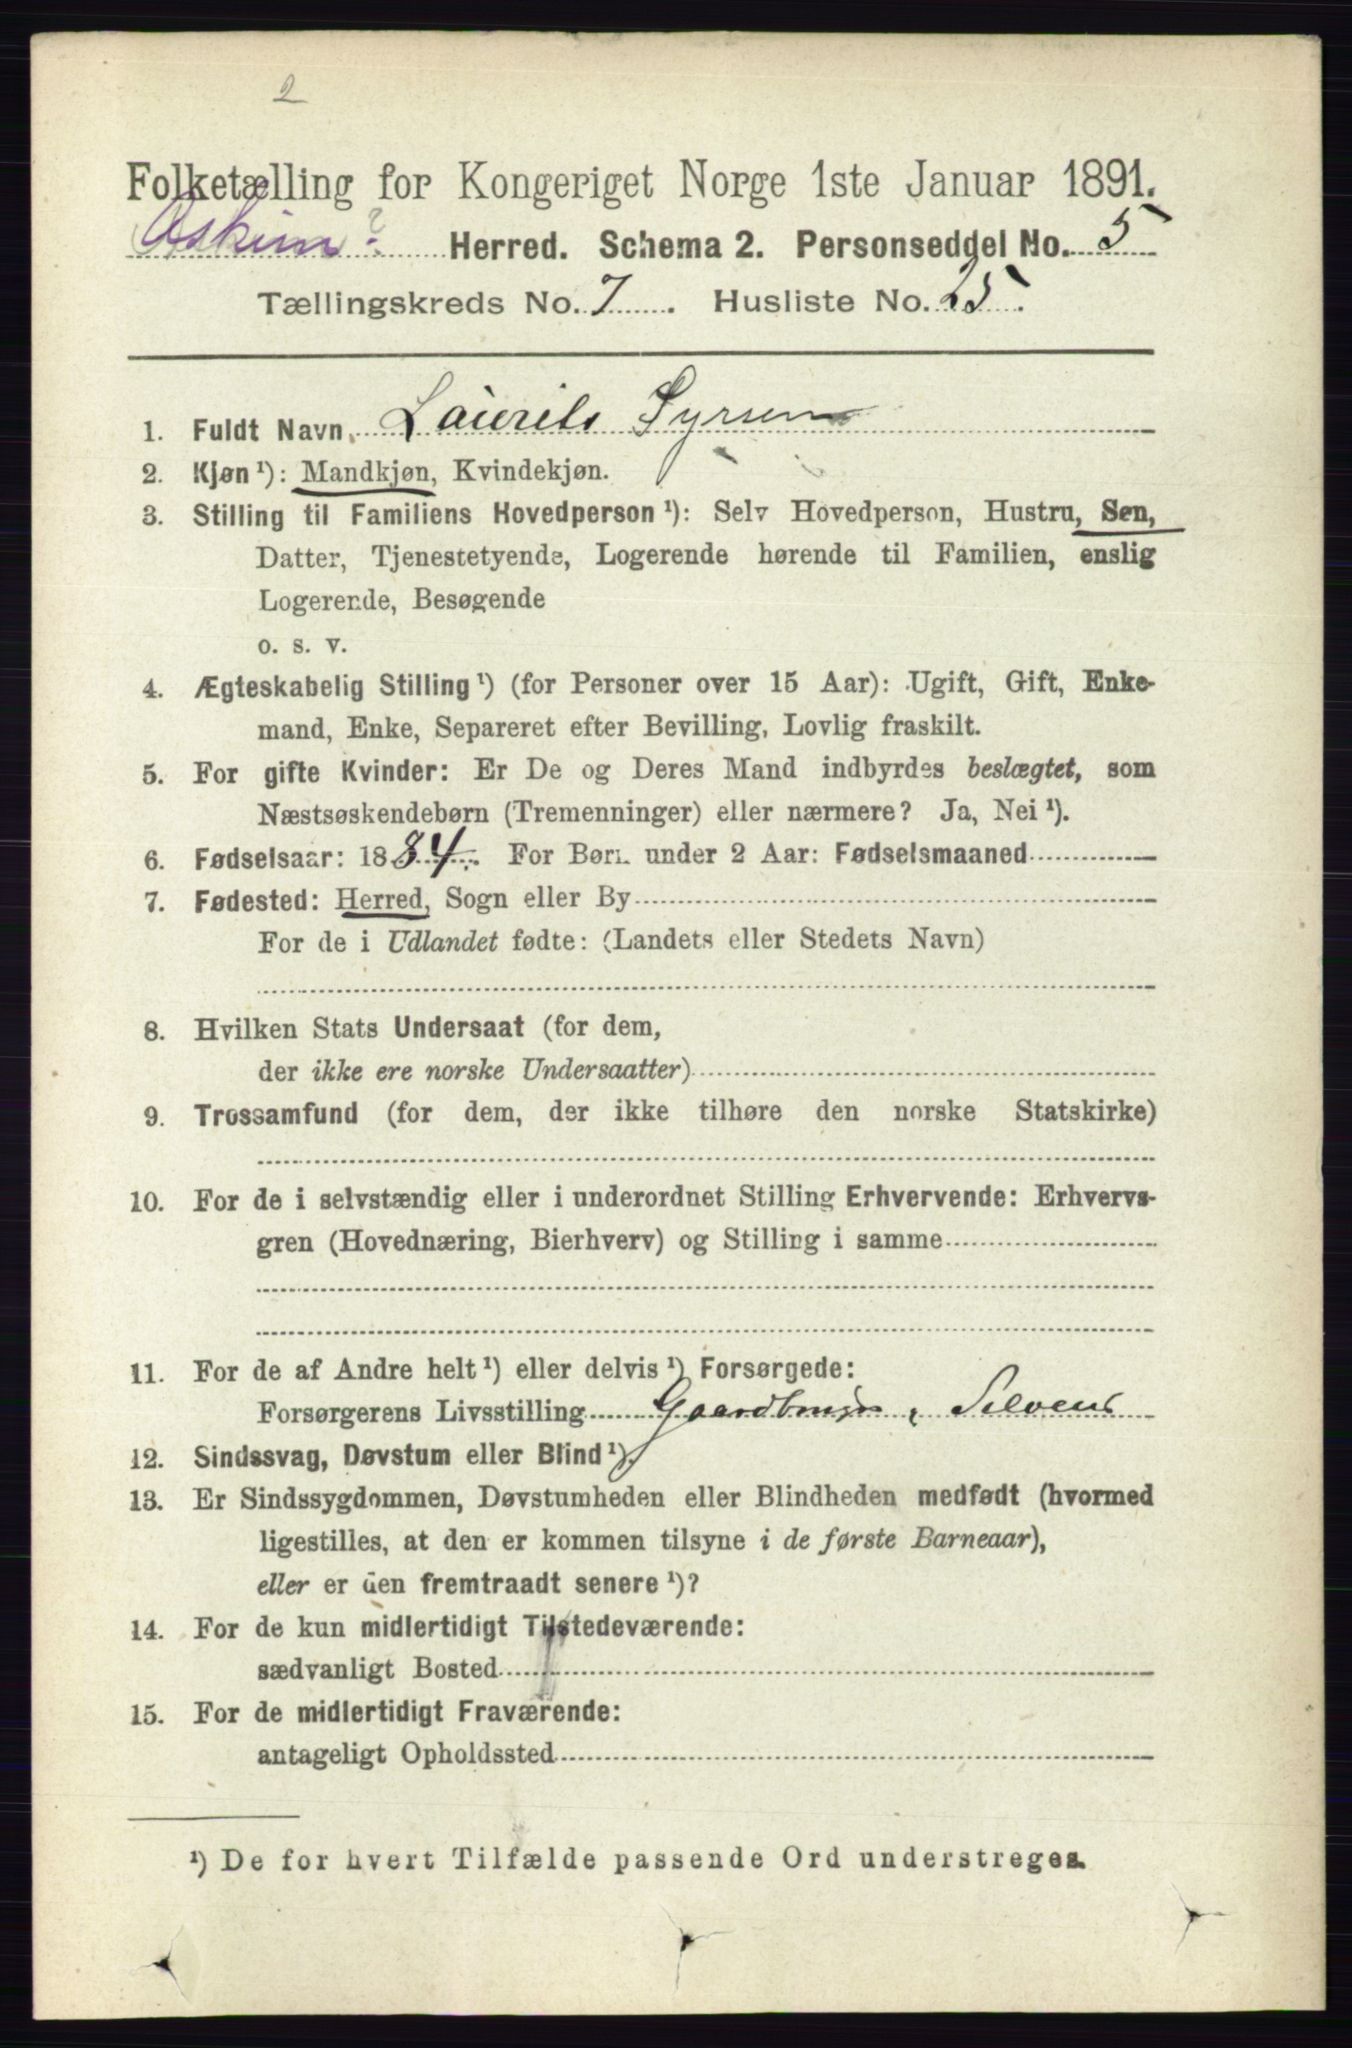 2
Folketælling for Kongeriget Norge 1ste Januar 1891.
Askim ? Herred. Schema 2. Personseddel No. 5
Tællingskreds No. 7. Husliste No. 25.
1. Fuldt Navn Laurits Syrsen
2. Kjøn ¹): Mandkjøn, Kvindekjøn.
3. Stilling til Familiens Hovedperson ¹): Selv Hovedperson, Hustru, Søn,
Datter, Tjenestetyende, Logerende hørende til Familien, enslig
Logerende, Besøgende
o. s. v.
4. Ægteskabelig Stilling ¹) (for Personer over 15 Aar): Ugift, Gift, Enke-
mand, Enke, Separeret efter Bevilling, Lovlig fraskilt.
5. For gifte Kvinder: Er De og Deres Mand indbyrdes beslægtet, som
Næstsøskendebørn (Tremenninger) eller nærmere? Ja, Nei ¹).
6. Fødselsaar: 1884. For Børn under 2 Aar: Fødselsmaaned
7. Fødested: Herred, Sogn eller By
For de i Udlandet fødte: (Landets eller Stedets Navn)
8. Hvilken Stats Undersaat (for dem,
der ikke ere norske Undersaatter)
9. Trossamfund (for dem, der ikke tilhøre den norske Statskirke)
10. For de i selvstændig eller i underordnet Stilling Erhvervende: Erhvervs-
gren (Hovednæring, Bierhverv) og Stilling i samme
11. For de af Andre helt ¹) eller delvis ¹) Forsørgede:
Forsørgerens Livsstilling Gaardbruger, Selveier
12. Sindssvag, Døvstum eller Blind ¹).
13. Er Sindssygdommen, Døvstumheden eller Blindheden medfødt (hvormed
ligestilles, at den er kommen tilsyne i de første Barneaar),
eller er den fremtraadt senere ¹)?
14. For de kun midlertidigt Tilstedeværende:
sædvanligt Bosted
15. For de midlertidigt Fraværende:
antageligt Opholdssted
¹) De for hvert Tilfælde passende Ord understreges.